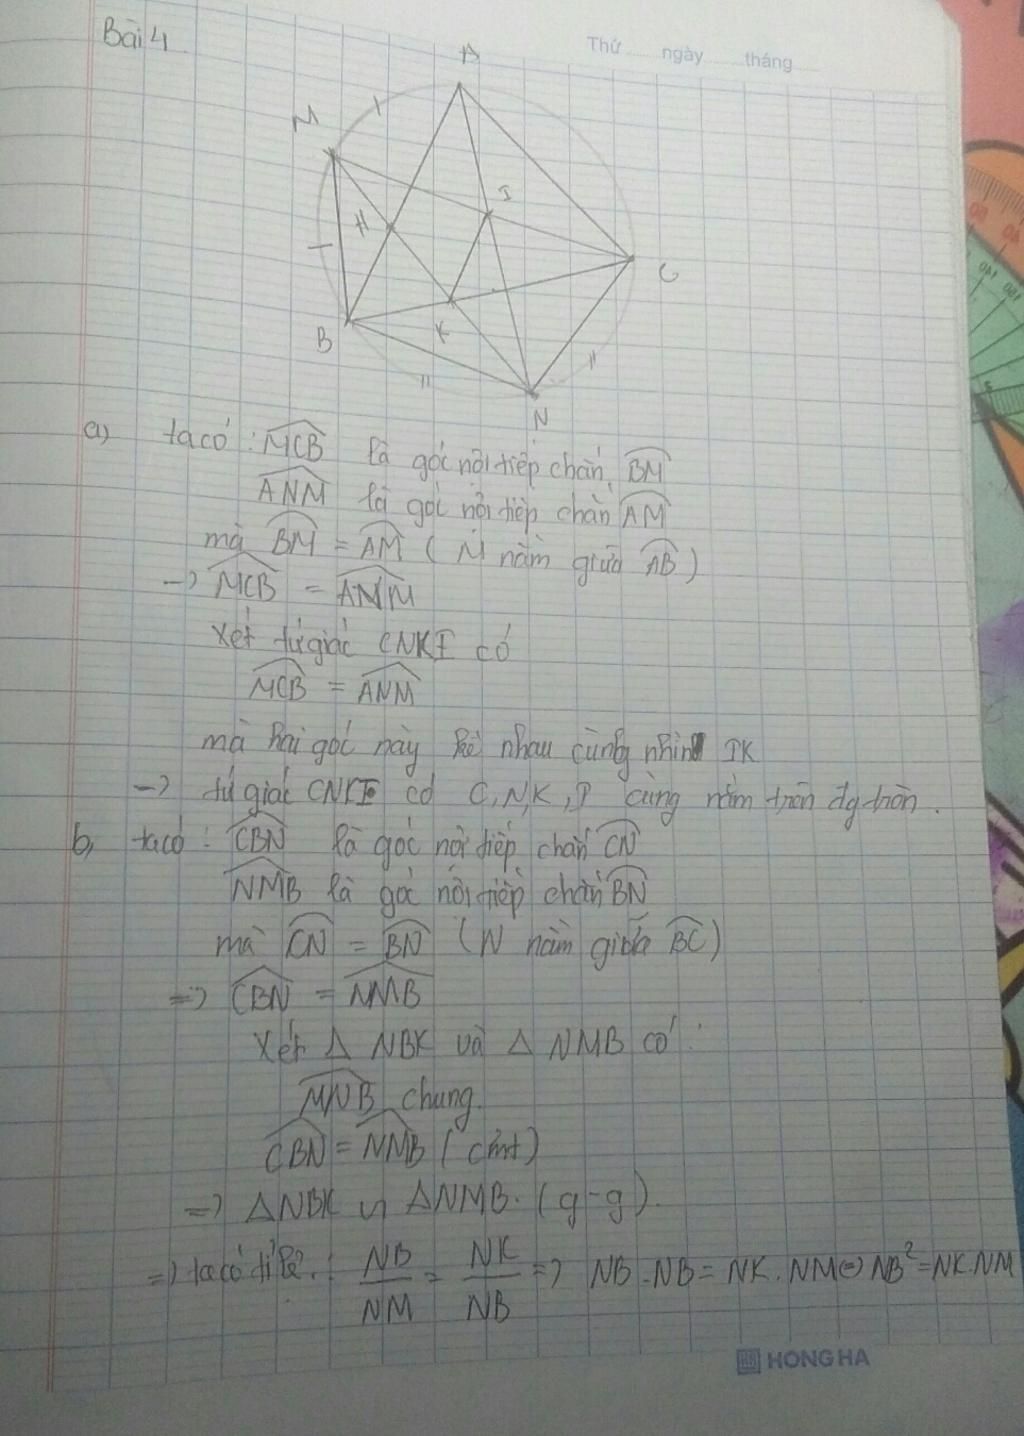 Bài 4
Thứ ngày tháng
A
M
I
H
C
K
B
N
a) ta có : MCB là góc nội tiếp chắn BM
ANM là góc nội tiếp chắn AM
mà BM = AM ( M nằm giữa AB )
-> MCB = ANM
Xét tứ giác CNKI có
MCB = ANM
mà hai góc này kề nhau cùng nhìn IK
-> tứ giác CNKI có C, N, K, I cùng nằm trên đg tròn .
b, ta có : CBN là góc nội tiếp chắn CN
NMB là góc nội tiếp chắn BN
mà CN = BN ( N nằm giữa BC )
=> CBN = NMB
Xét Δ NBK và Δ NMB có :
MNB chung.
CBN = NMB ( cmt )
=> ΔNBK ∽ ΔNMB. ( g - g ).
=> ta có tỉ lệ : NB/NM = NK/NB => NB . NB = NK . NM <=> NB² = NK.NM
HONG HA